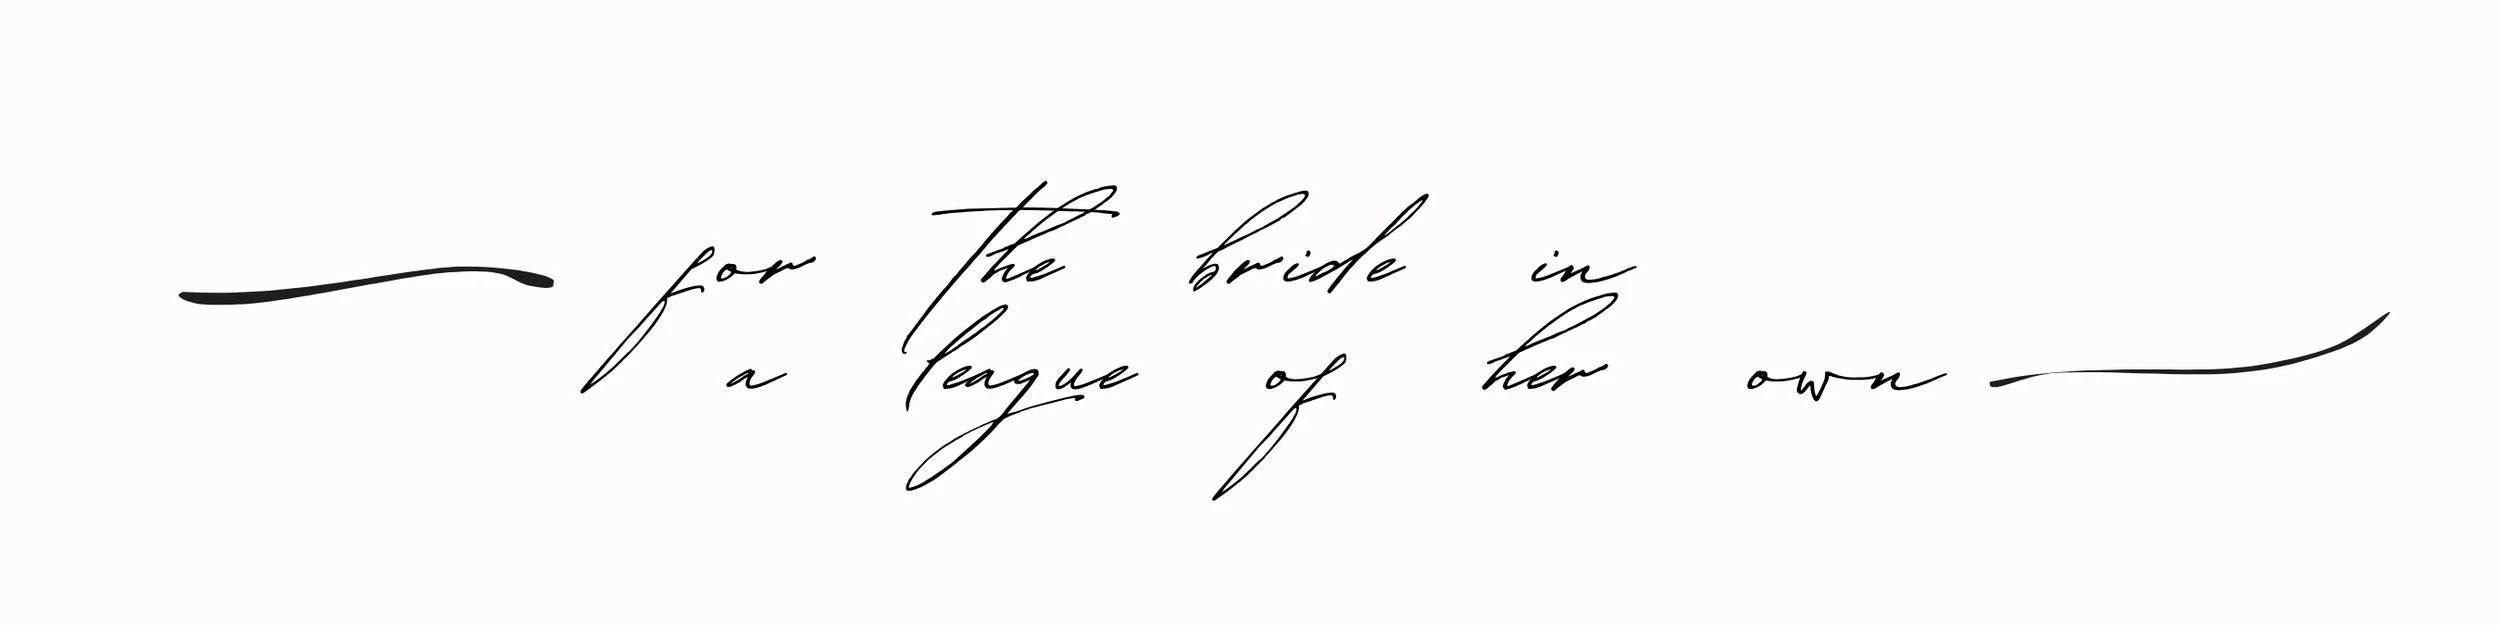 for the bride in
a league of her own